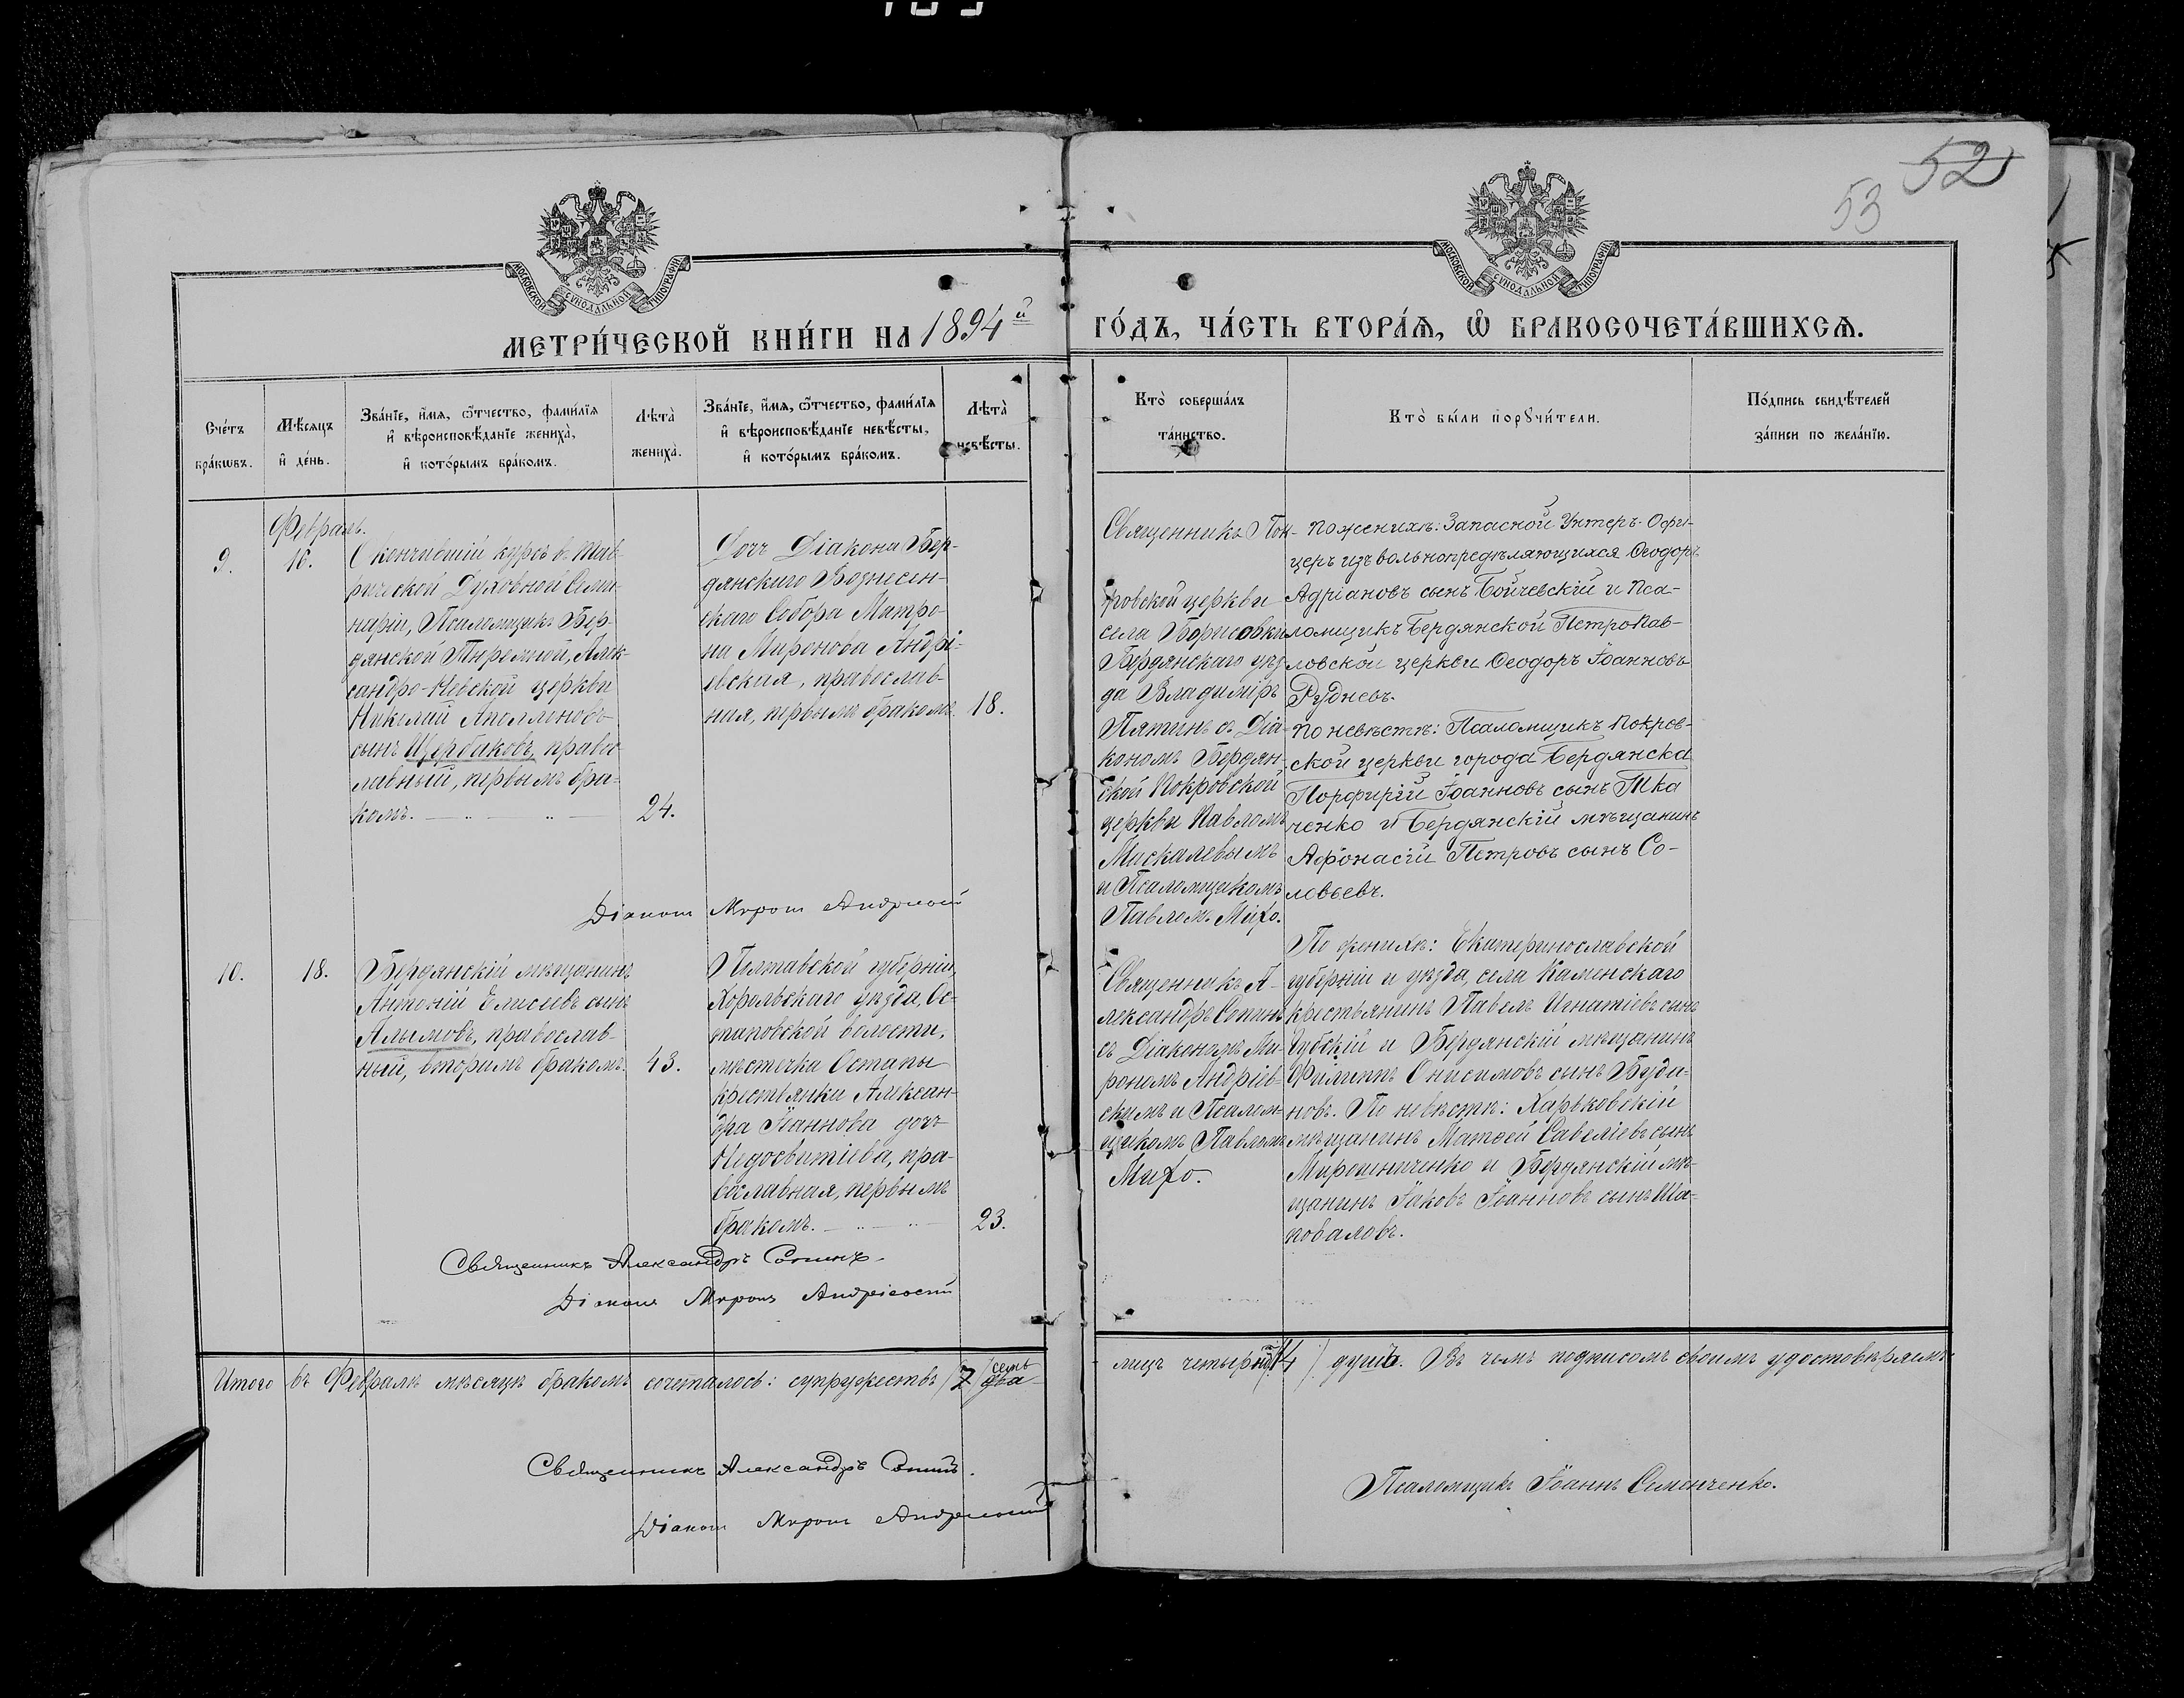 52
53
МОСКОВСКОЙ СУНОДАЛЬНОЙ ТИПОГРАФІИ
МОСКОВСКОЙ СУНОДАЛЬНОЙ ТИПОГРАФІИ
МЕТРИ́ЧЕСКОЙ КНИ́ГИ НА 1894й
ГО́ДЪ, ЧА́СТЬ ВТОРА́Ѧ, Ѡ҆ БРАКОСОЧЕТА́ВШИХСѦ.
Сче́тъ
бра́кѡвъ.
Мѣ́сяцъ
и҆ де́нь.
Зва́нїе, и҆́мѧ, ѻ҆́тчество, фами́лїѧ
и҆ вѣроисповѣ́данїе жениха̀,
и҆ кото́рымъ бра́комъ.
Лѣта̀
жениха̀.
Зва́нїе, и҆́мѧ, ѻ҆́тчество, фами́лїѧ
и҆ вѣроисповѣ́данїе невѣ́сты,
и҆ кото́рымъ бра́комъ.
Лѣта̀
невѣ́сты.
Кто̀ соверша́лъ
та́инство.
Кто̀ бы́ли порꙋчи́тели.
По́дпись свидѣ́телей
за́писи по жела́нїю.
Февраль.
9.
16.
Окончившій курсъ въ Тав-
рической Духовной Семи-
наріи, Псаломщикъ Бер-
дянской Тюремной, Алек-
сандро-Невской церкви
Николай Аполлоновъ
сынъ Щербаковъ, правос
лавный, первымъ бра-
комъ.
24.
Дочь Діакона Бер-
дянскаго Вознесен-
скаго Собора Матро-
на Миронова Андрі-
евская, православ-
ная, первымъ бракомъ.
18.
Священникъ Пок-
ровской церкви
села Борисовки
Бердянскаго уѣз
да Владиміръ
Пятинъ съ Діа-
кономъ Бердян-
ской Покровской
церкви Павломъ
Москалевымъ
и Псаломщикомъ
Павломъ Михо.
По женихѣ: Запасной Унтеръ-Офи-
церъ изъ вольнопредѣляющихся Ѳеодоръ
Адріановъ сынъ Бойчевскій и Пса-
ломщикъ Бердянской Петропав-
ловской церкви Ѳеодоръ Іоанновъ
Рудневъ.
По невѣстѣ: Псаломщикъ Покров-
ской церкви города Бердянска
Порфирій Іоанновъ сынъ Тка
ченко и Бердянскій мѣщанинъ
Афонасій Петровъ сынъ Со-
ловьевъ.
Діаконъ Миронъ Андріевскій
10.
18.
Бердянскій мѣщанинъ
Антоній Елисеевъ сынъ
Алымовъ, православ-
ный, вторымъ бракомъ.
43.
Полтавской губерніи,
Хорольскаго уѣзда, Ос-
таповской волости,
мѣстечка Остапы
крестьянка Алексан-
дра Іоаннова дочь
Недосвитіева, пра-
вославная, первымъ
бракомъ.
23.
Священникъ А-
лександръ Сопинъ
съ Діакономъ Ми-
рономъ Андріев-
скимъ и Псалом-
щикомъ Павломъ
Михо.
По женихѣ: Екатеринославской
губерніи и уѣзда, села Каменскаго
крестьянинъ Павелъ Игнатіевъ сынъ
Губскій и Бердянскій мѣщанинъ
Филиппъ Онисимовъ сынъ Буди-
новъ. По невѣстѣ: Харьковскій
мѣщанинъ Матѳей Савеліевъ сынъ
Мирошниченко и Бердянскій мѣ-
щанинъ Іаковъ Іоанновъ сынъ Ша-
поваловъ.
Священникъ Александръ Сопинъ.
Діаконъ Миронъ Андріевскій
Итого въ Февралѣ мѣсяцѣ бракомъ сочеталось: супружествъ /7/ семь
два
лицъ четырнад 14 / душъ. Въ чемъ подписомъ своимъ удостовѣряемъ:
Священникъ Александръ Сопинъ.
Діаконъ Миронъ Андріевскій
Псаломщикъ Іоаннъ Семенченко.